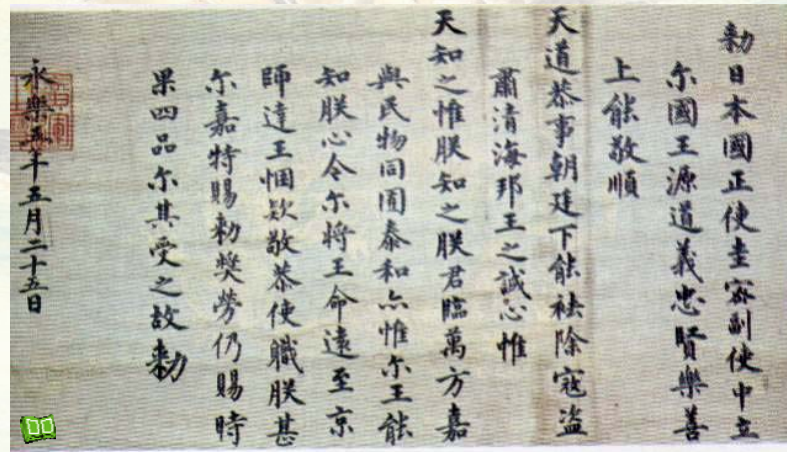 勅日本國正使圭密副使中立
尔國王源道義忠賢樂善
上能敬順
天道恭事朝廷下能祛除寇盗
肅清海邦王之誠心惟
天知之惟朕知之朕君臨萬方嘉
與民物同囿泰和亦惟尔王能
知朕心今尔将王命遠至京
師達王悃欵敬恭使職朕甚
尔嘉特賜勅奬勞仍賜時
果四品尔其受之故勅
永樂五年五月二十五日